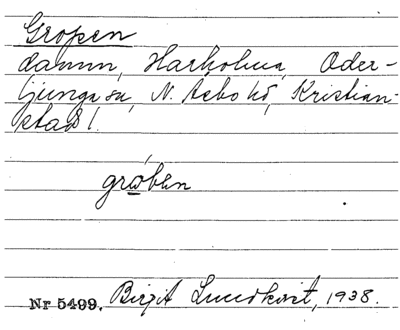 Gropen
damm, Harholma, Oder-
ljunga sn, N. Åsbo hd, Kristian-
stads l.
grωbən
Nr 5499. Birgit Lundkvist, 1938.